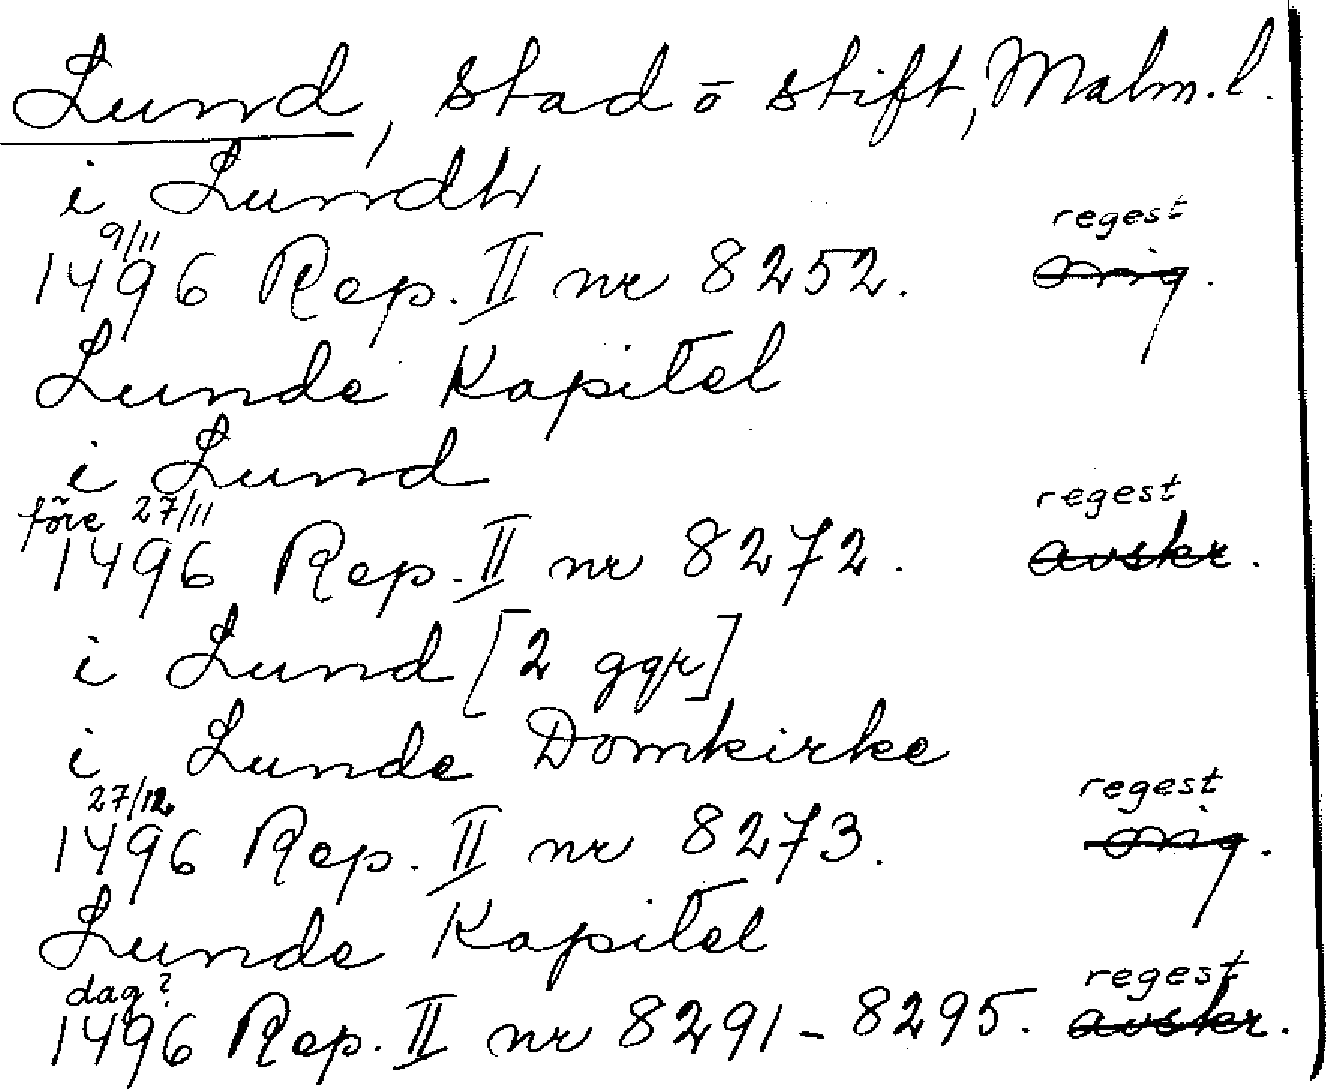 Lund, stad ō stift, Malm. l.
i Lundh
9/11 regest
1496 Rep. II nr 8252. orig.
Lunde Kapitel
i Lund
före 27/11 regest
1496 Rep. II nr 8272. avskr.
i Lund [2 ggr]
i Lunde Domkirke
27/12 regest
1496 Rep. II nr 8273. orig.
Lunde Kapitel
dag? regest
1496 Rep. II nr 8291-8295. avskr.